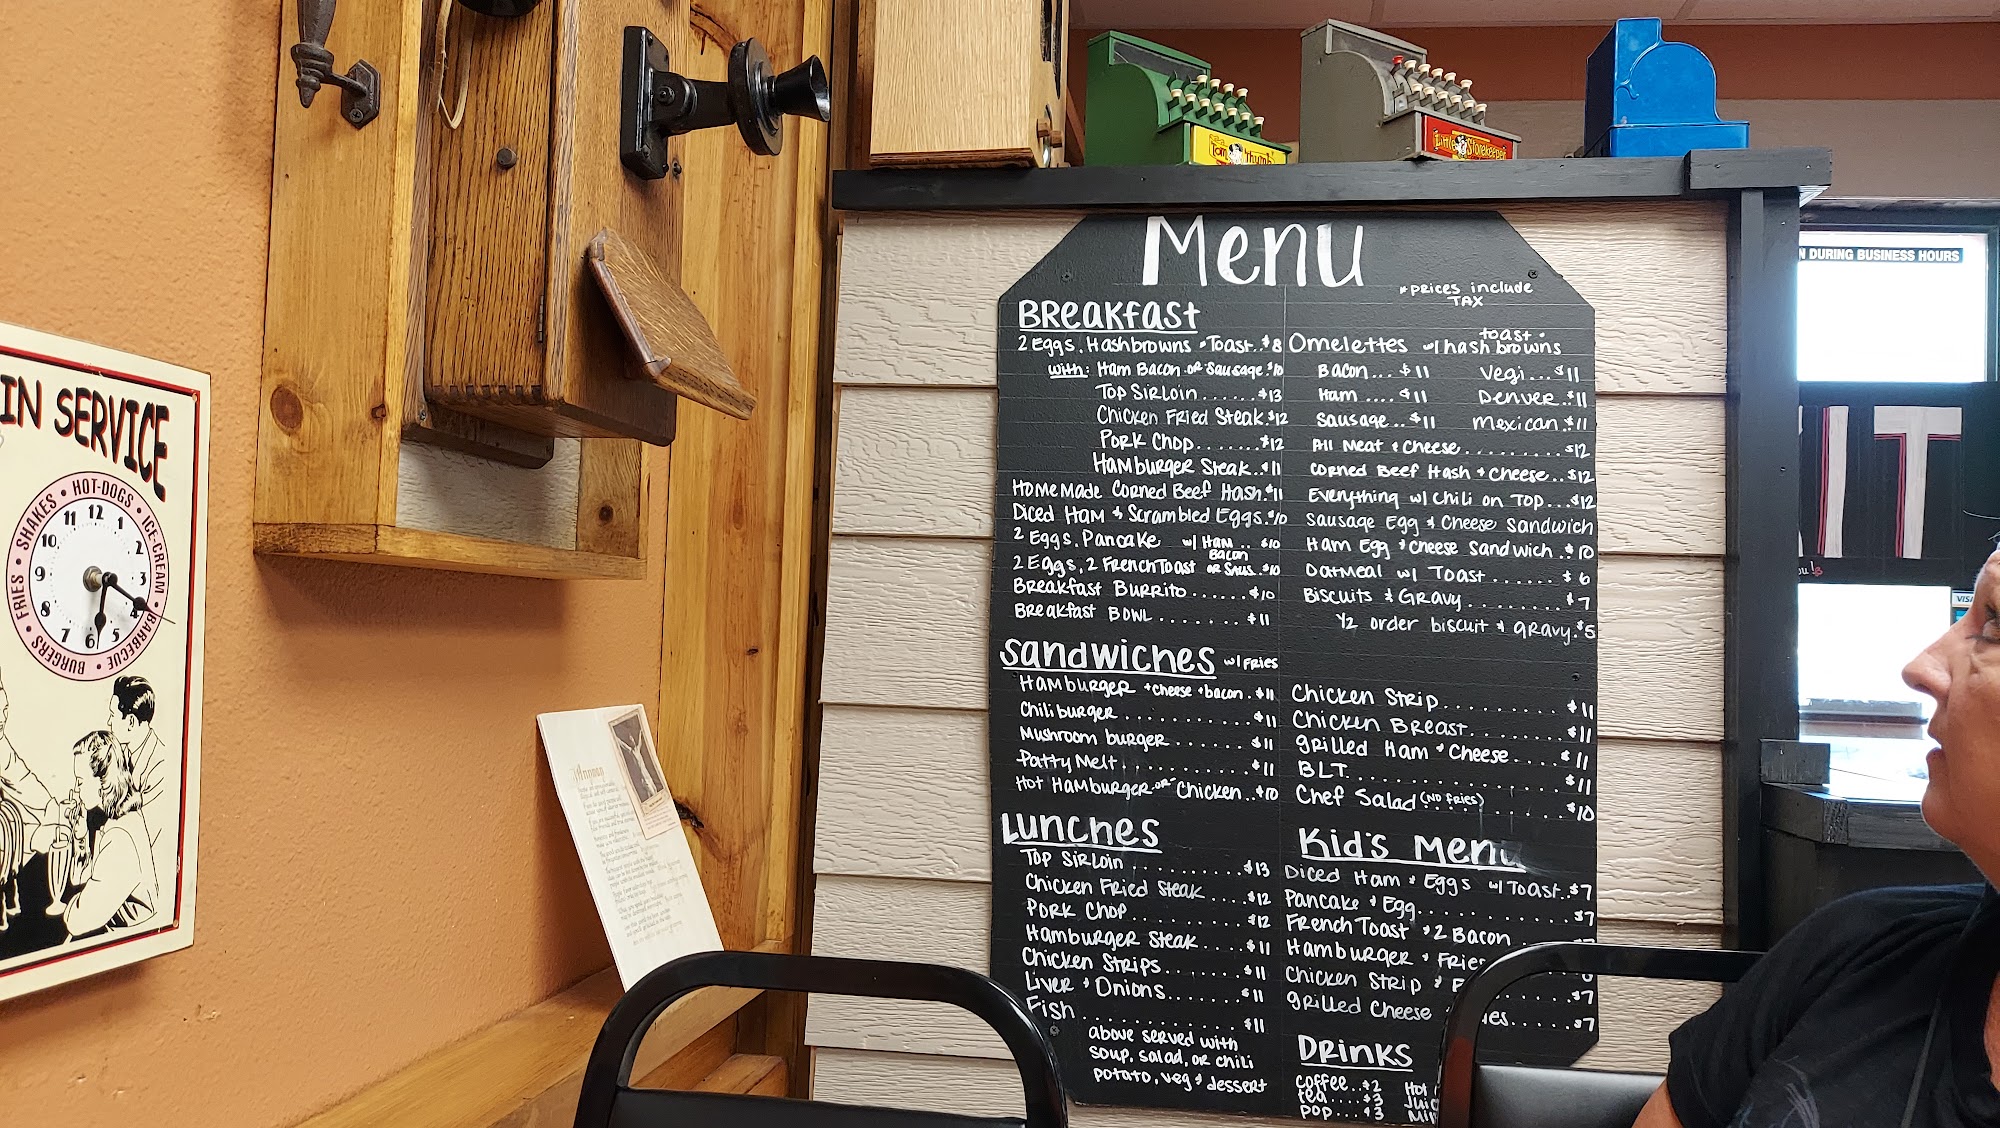 IN SERVICE
HOT-DOGS • ICE-CREAM • BARBECUE • BURGERS • FRIES • SHAKES •
12 1 2 3 5 6 7 8 9 10 11
Tom Thumb
Little Storekeeper
N DURING BUSINESS HOURS
IT
VISA
Menu
*prices include
TAX
Breakfast
2 Eggs, Hashbrowns + Toast..$8
with: Ham Bacon or Sausage.$10
Top Sirloin.......$13
Chicken Fried Steak.$12
Pork Chop.......$12
Hamburger Steak..$11
HomeMade Corned Beef Hash.$11
Diced Ham + Scrambled Eggs.$10
2 Eggs, Pancake w/ Ham..$10
Bacon
2 Eggs, 2 French Toast or Saus..$10
Breakfast Burrito......$10
Breakfast Bowl.......$11
Omelettes w/ hash browns
toast +
Bacon...$11
Ham....$11
Sausage..$11
Vegi...$11
Denver.$11
Mexican.$11
All Meat + Cheese.........$12
Corned Beef Hash + Cheese..$12
Everything w/ Chili on Top...$12
Sausage Egg + Cheese Sandwich
Ham Egg + Cheese Sandwich.$10
Oatmeal w/ Toast......$6
Biscuits + Gravy.........$7
1/2 order biscuit + gravy.$5
Sandwiches w/ Fries
Hamburger +cheese +bacon.$11
Chiliburger...........$11
Mushroom burger......$11
Patty Melt...........$11
Hot Hamburger or Chicken..$10
Chicken Strip..........$11
Chicken Breast........$11
Grilled Ham + Cheese...$11
BLT................$11
Chef Salad (No Fries)......$10
Lunches
Top Sirloin..........$13
Chicken Fried Steak....$12
Pork Chop..........$12
Hamburger Steak....$11
Chicken Strips.......$11
Liver + Onions.......$11
Fish.............$11
above served with
soup, salad, or chili
potato, veg + dessert
Kid's Menu
Diced Ham + Eggs w/ Toast..$7
Pancake + Egg...........$7
French Toast + 2 Bacon
Hamburger + Fries
Chicken Strip + F.....$7
Grilled Cheese + ies.....$7
Drinks
Coffee..$2
Tea...$3
Pop...$3
Hot
Juic
Mil